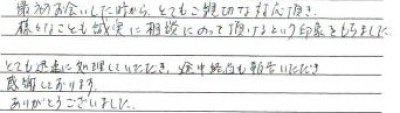 最初お会いした時から、とてもご親切な対応頂き、
様々なことも誠実に相談にのって頂けるという印象をもちました
とても迅速に処理していただき、途中経過も報告いただき
感謝しております。
ありがとうございました。